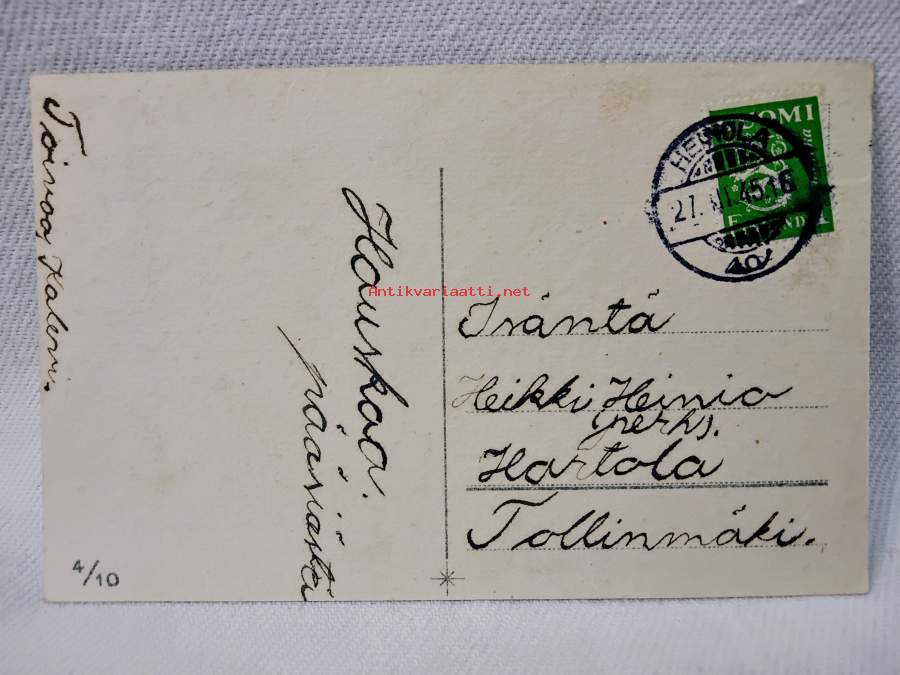 Hauskaa.
pääsiästä
Toivoo, Kalervi.
4/10
SUOMI
HEINOLA
27. III. 45.16
FINLANDIA
Isäntä
Heikki Heinio
perhs.
Hartola
Tollinmäki.
Antikvariaatti.net